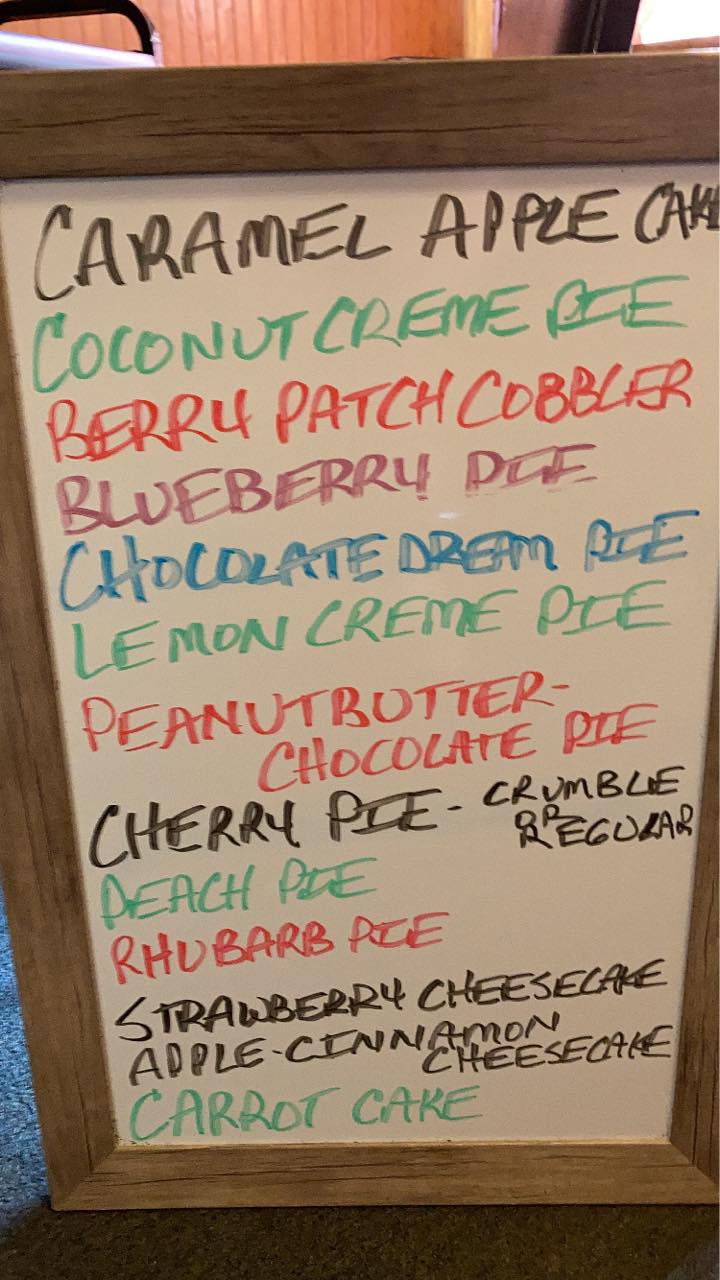 CARAMEL APPLE CAKE
COCONUT CREME PIE
BERRY PATCH COBBLER
BLUEBERRY PIE
CHOCOLATE DREAM PIE
LEMON CREME PIE
PEANUTBUTTER-
CHOCOLATE PIE
CHERRY PIE - CRUMBLE
OR
REGULAR
PEACH PIE
RHUBARB PIE
STRAWBERRY CHEESECAKE
APPLE-CINNAMON
CHEESECAKE
CARROT CAKE